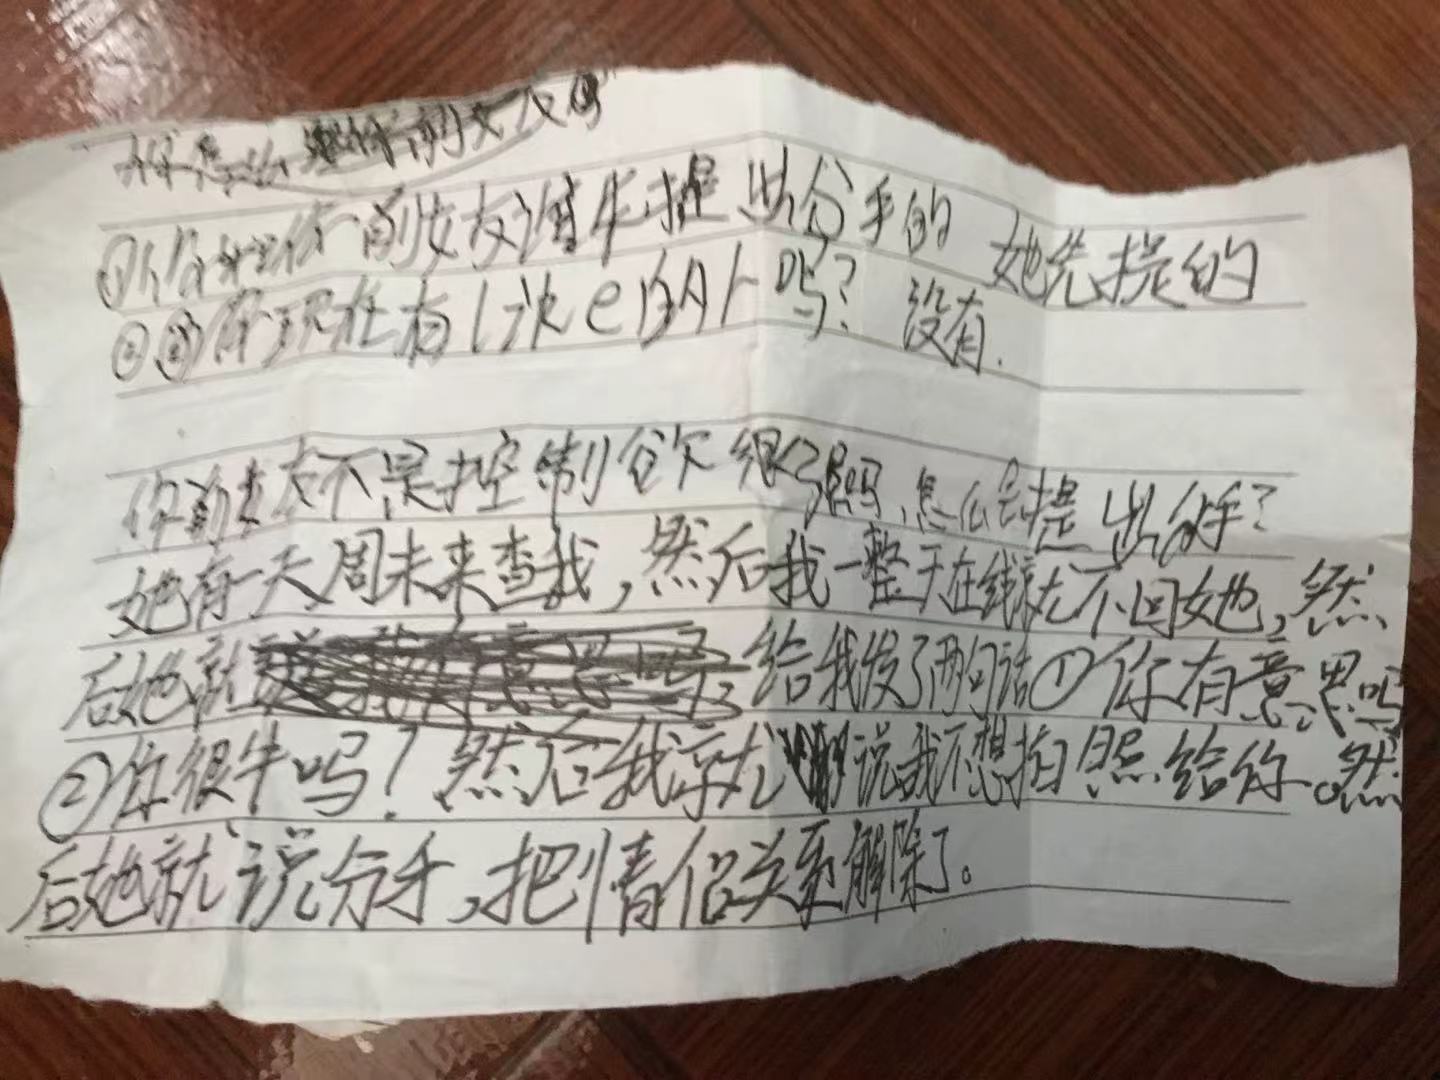 你怎么 前女友
①你和你前女友谁先提出分手的 她先提的
②你现在有1次e的人吗？ 没有.
你前女友不是控制欲很强吗,怎么会提出分手？
她有一天周末来查我，然后我一整天在线就不回她，然
后她就 给我发了两句话①你有意思吗
②你很牛吗！然后我就说我不想拍照给你。然
后她就说分手，把情侣关系解除了。